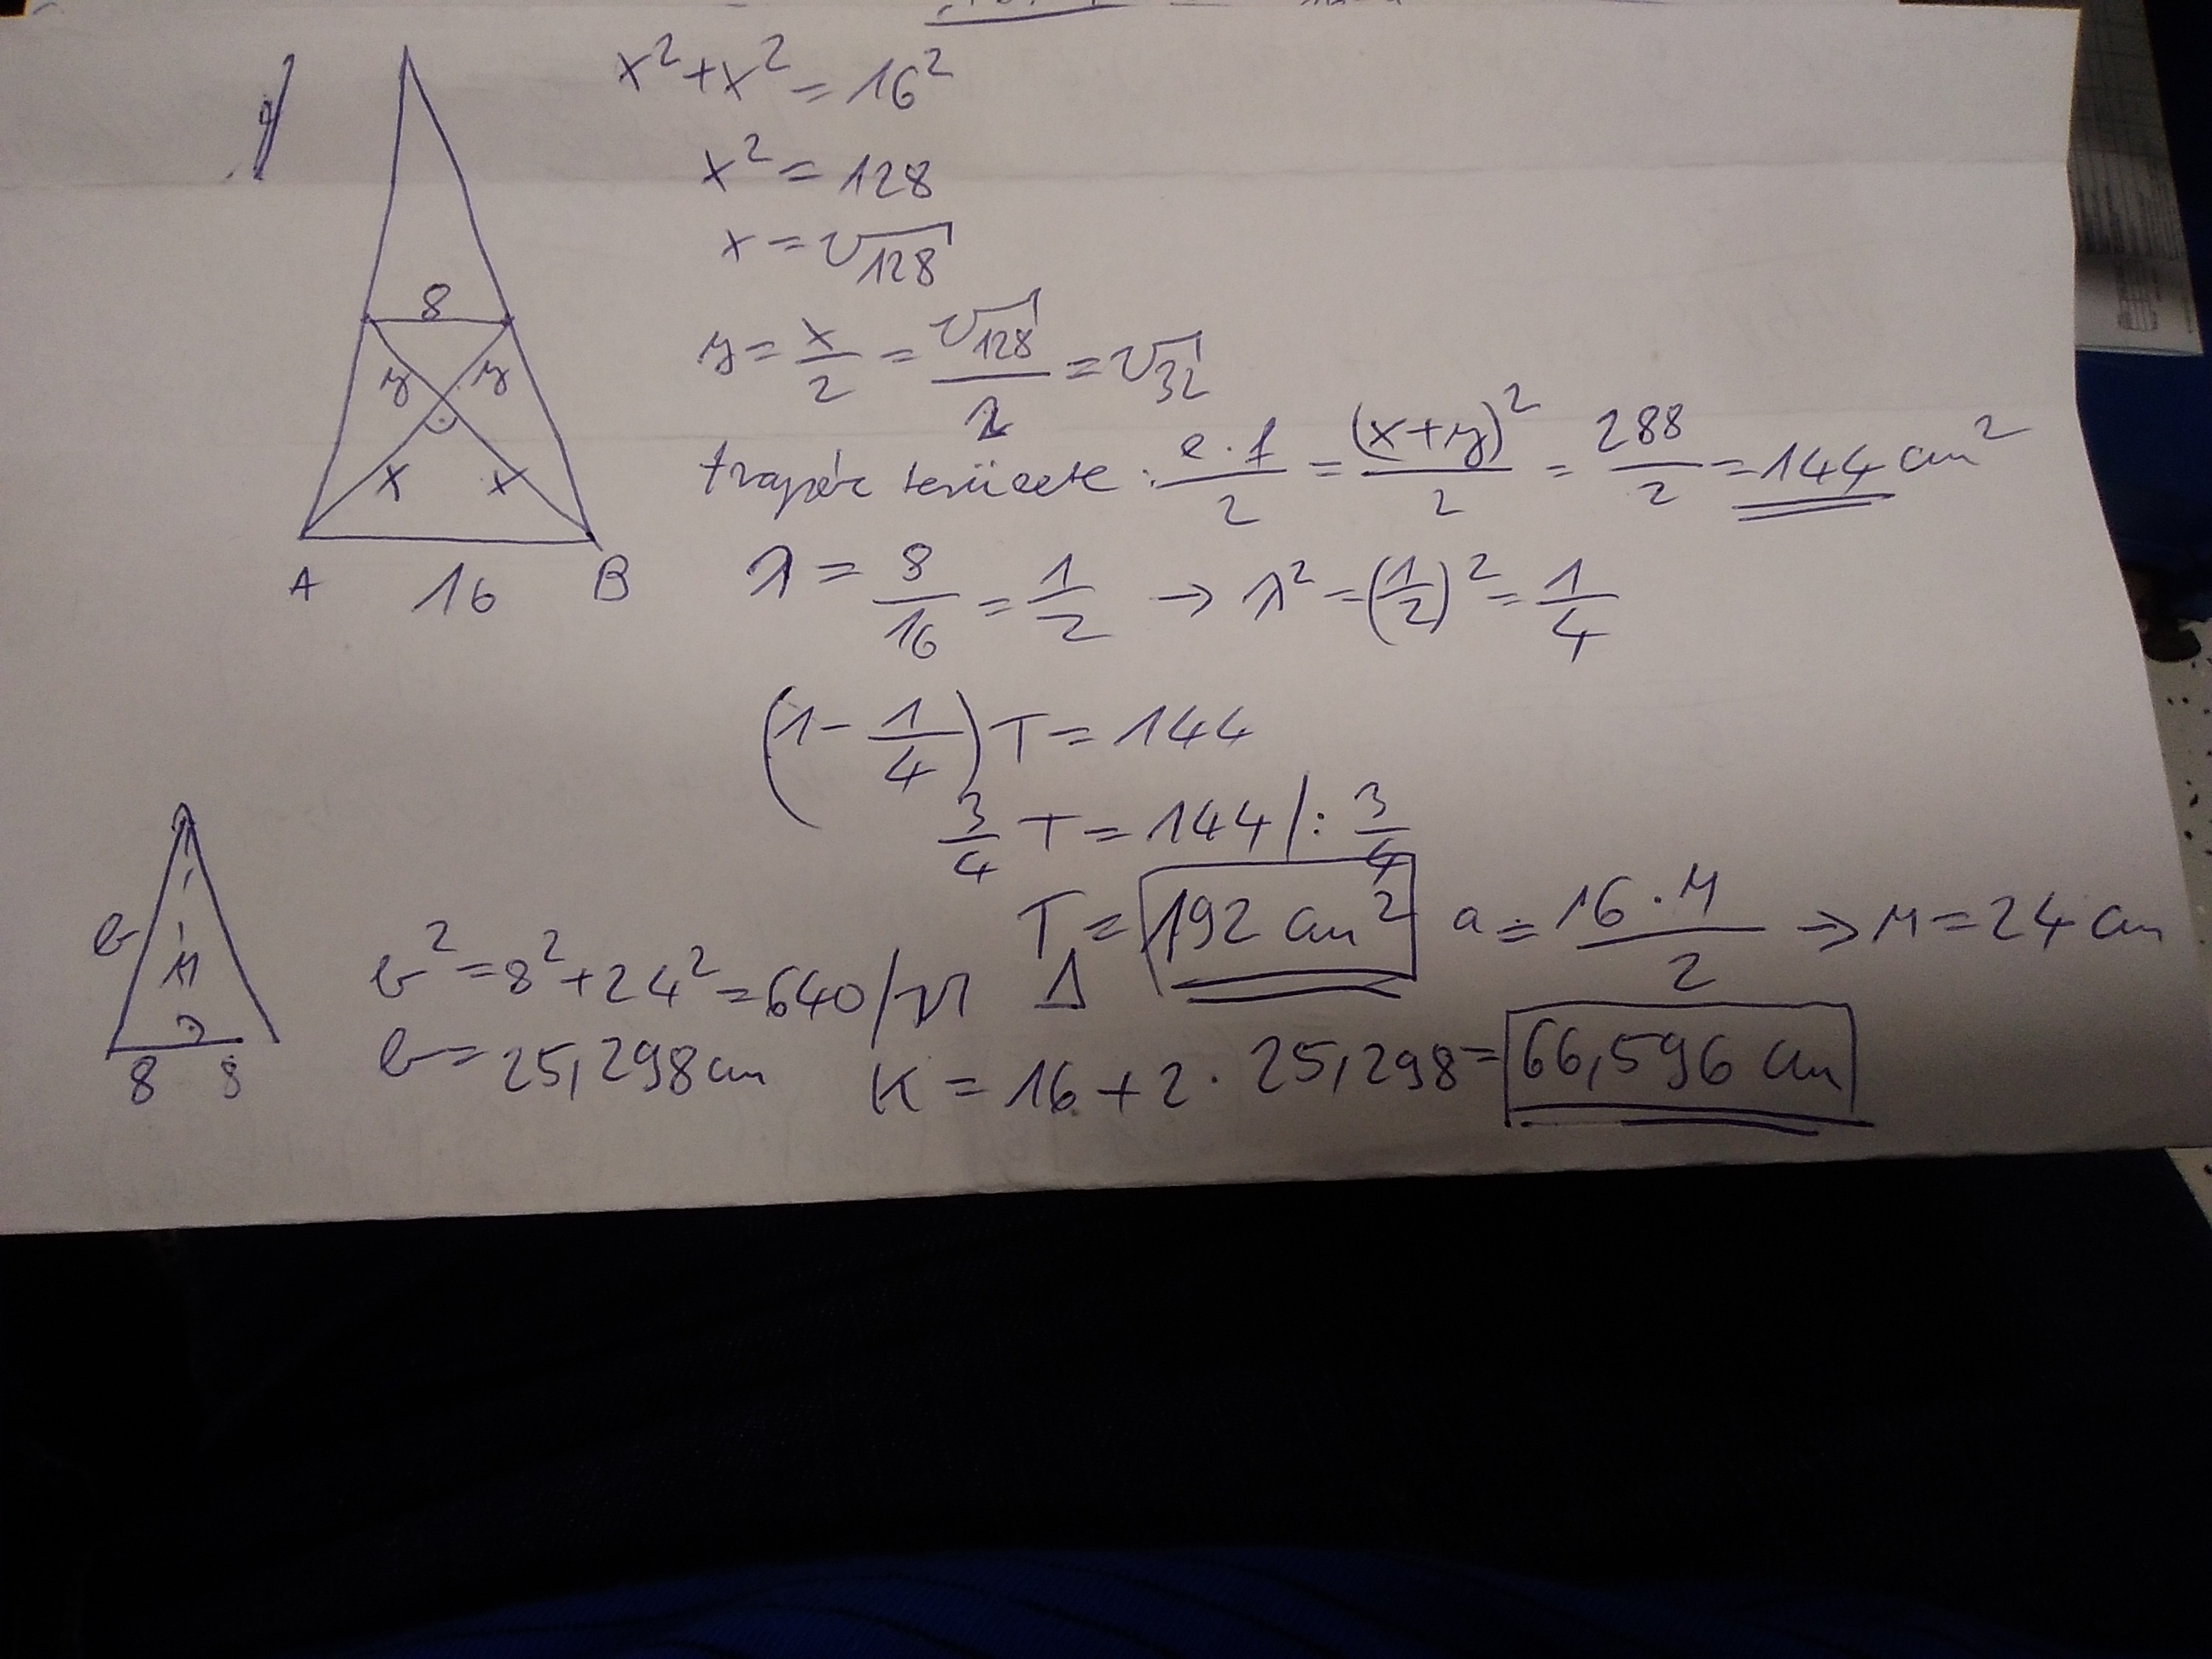 x² + x² = 16²
x² = 128
x = √128
8
y = x/2 = √128/2 = √32
y y
trapéz területe: e·f/2 = (x+y)²/2 = 288/2 = 144 cm²
x x
A 16 B
λ = 8/16 = 1/2 → λ² = (1/2)² = 1/4
(1 - 1/4) T = 144
3/4 T = 144 /: 3/4
T△ = 192 cm² a = 16·M/2 → M = 24 cm
b M
b² = 8² + 24² = 640 /√
8 8
b = 25,298 cm K = 16 + 2 · 25,298 = 66,596 cm